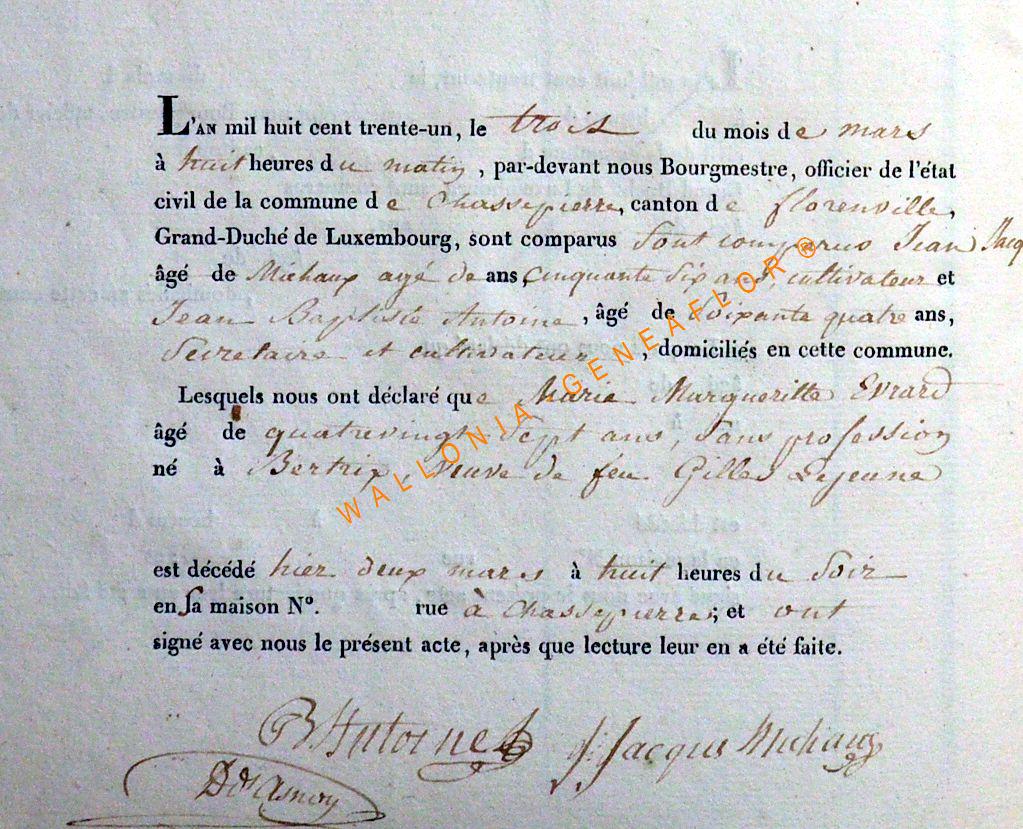 L'AN mil huit cent trente-un, le trois du mois de mars
à huit heures du matin, par-devant nous Bourgmestre, officier de l'état
civil de la commune de Chassepierre, canton de florenville,
Grand-Duché de Luxembourg, sont comparus Sont comparus Jean Jacq
âgé de Michaux agé de ans cinquante six ans, cultivateur et
Jean Baptiste Antoine, âgé de Soixante quatre ans,
Secretaire et cultivateur, domiciliés en cette commune.
Lesquels nous ont déclaré que Marie Margueritte Evrard
âgé de quatrevingt Sept ans, Sans profession
né à Bertrix Veuve de feu Gilles Lejeune
est décédé hier deux mars à huit heures du Soir
en sa maison N°. rue à Chassepierre; et ont
signé avec nous le présent acte, après que lecture leur en a été faite.
Antoine J. Jacques Michaux
WALLONIA GENEAFLOR®